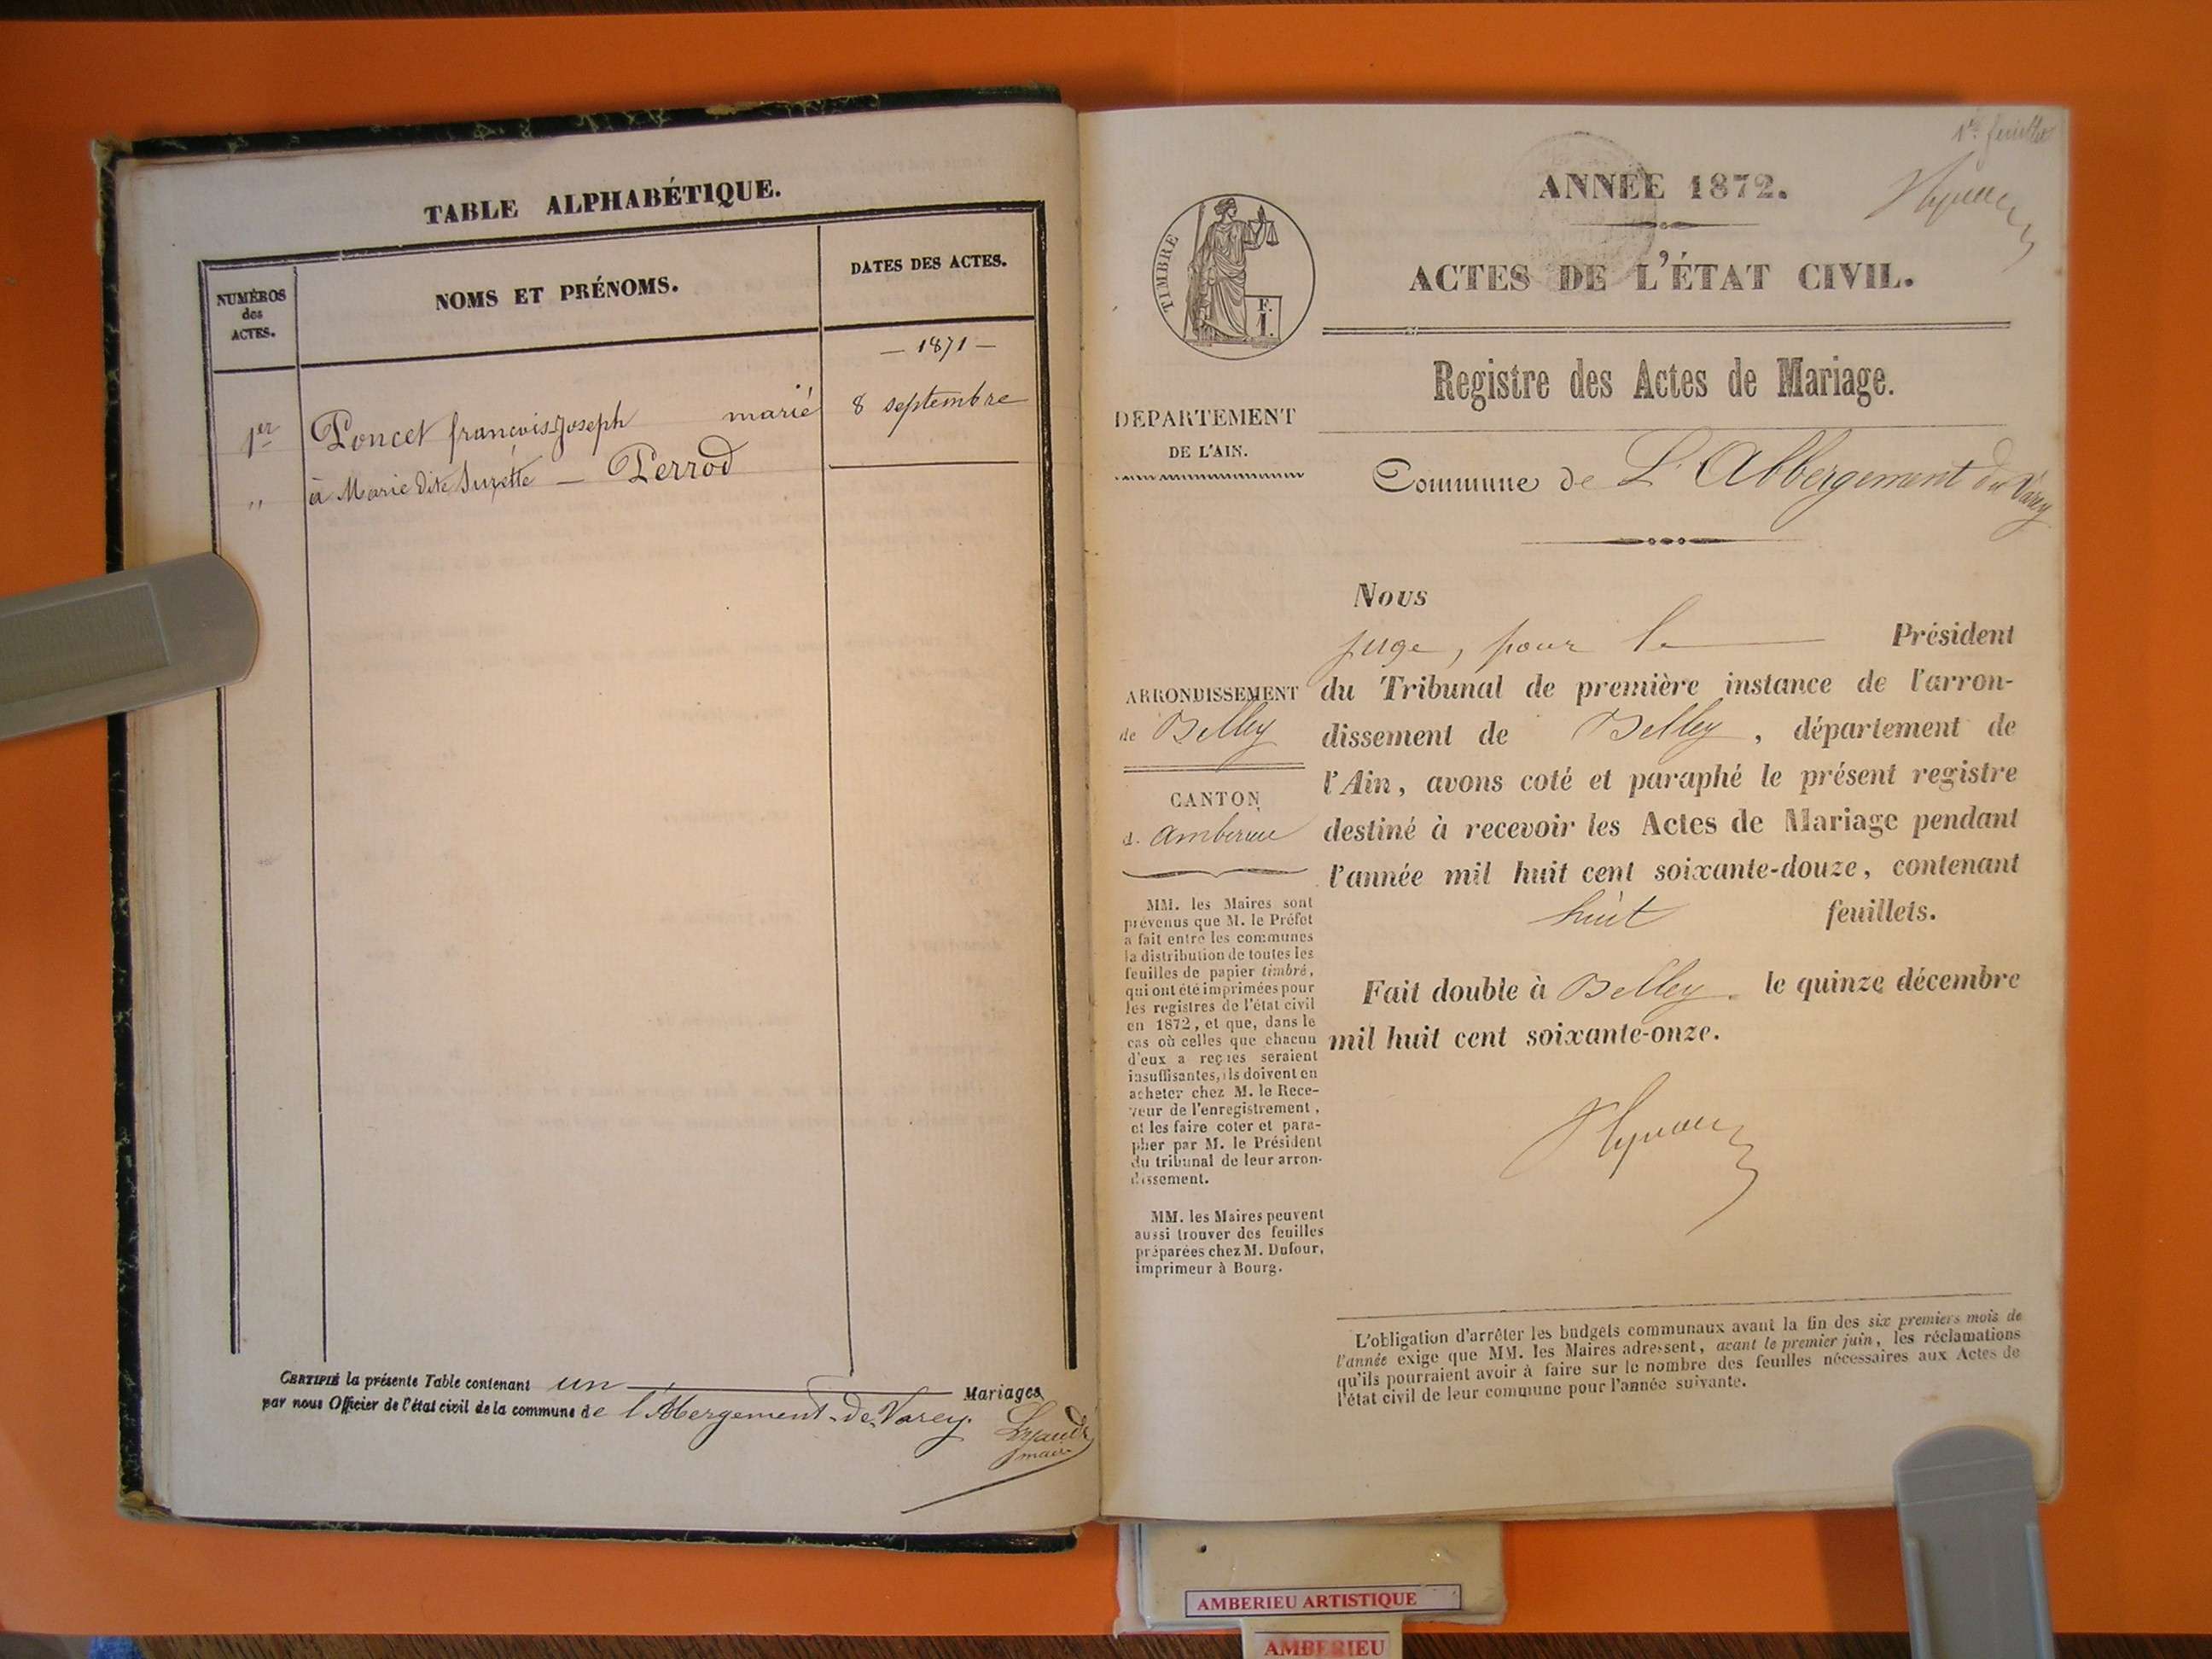 TABLE ALPHABÉTIQUE.
NUMÉROS
des
ACTES.
NOMS ET PRÉNOMS.
DATES DES ACTES.
— 1871 —
1er Poncet françois Joseph marié 8 septembre
" à Marie dite Suzette — Perrod
CERTIFIÉ la présente Table contenant un Mariages
par nous Officier de l'état civil de la commune de l'Abergement-de-Varey.
maire
1er feuillet
ANNÉE 1872.
ACTES DE L'ÉTAT CIVIL.
TIMBRE
F.
1.
Registre des Actes de Mariage.
DÉPARTEMENT
DE L'AIN.
Commune de L'Abbergement de Varey
Nous
juge, pour le Président
du Tribunal de première instance de l'arron-
dissement de Belley, département de
l'Ain, avons coté et paraphé le présent registre
destiné à recevoir les Actes de Mariage pendant
l'année mil huit cent soixante-douze, contenant
huit feuillets.
Fait double à Belley. le quinze décembre
mil huit cent soixante-onze.
ARRONDISSEMENT
de Belley
CANTON
d. amberieu
MM. les Maires sont
prévenus que M. le Préfet
a fait entre les communes
la distribution de toutes les
feuilles de papier timbré,
qui ont été imprimées pour
les registres de l'état civil
en 1872, et que, dans le
cas où celles que chacun
d'eux a reçues seraient
insuffisantes, ils doivent en
acheter chez M. le Rece-
veur de l'enregistrement,
et les faire coter et para-
pher par M. le Président
du tribunal de leur arron-
dissement.
MM. les Maires peuvent
aussi trouver des feuilles
préparées chez M. Dufour,
imprimeur à Bourg.
L'obligation d'arrêter les budgets communaux avant la fin des six premiers mois de
l'année exige que MM. les Maires adressent, avant le premier juin, les réclamations
qu'ils pourraient avoir à faire sur le nombre des feuilles nécessaires aux Actes de
l'état civil de leur commune pour l'année suivante.
AMBERIEU ARTISTIQUE
AMBERIEU